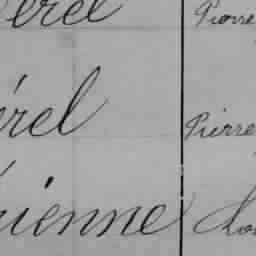 érel Pierre
érel Pierre
ienne